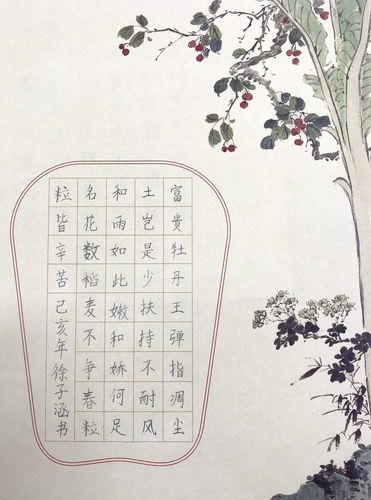 富贵牡丹王弹指凋尘
土岂是少扶持不耐风
和雨如此嫩和娇何足
名花数稻麦不争春粒
粒皆辛苦己亥年徐子涵书